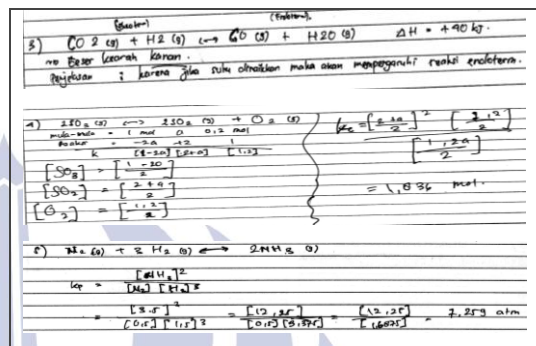 (Reaktan) (Produkan)
3) CO2 (g) + H2 (g) ⟷ CO (g) + H2O (g) ΔH = +40 kj.
Beser kearah kanan.
Penjelasan : karena jika suhu dinaikkan maka akan mempengaruhi reaksi endoterm.
4) 2SO3 (g) ⟷ 2SO2 (g) + O2 (g)
mula-mula = 1 mol 0 0,2 mol
= -2a +2 1
k [1-2a] [2+a] [1,2]
[SO3] = [1-20/2]
[SO2] = [2+a/2]
[O2] = [1,2/2]
= [2+a/2]² [1,2/2]
[1,2a/2]
= 1,836 mol.
5) N2 (g) + 3 H2 (g) ⟷ 2NH3 (g)
kp = [NH3]² / [N2] [H2]³
= [3.5]² / [0,5] [1,5]³ = [12,25] / [0,5] [3,375] = [12,25] / [1,6875] = 7,259 atm